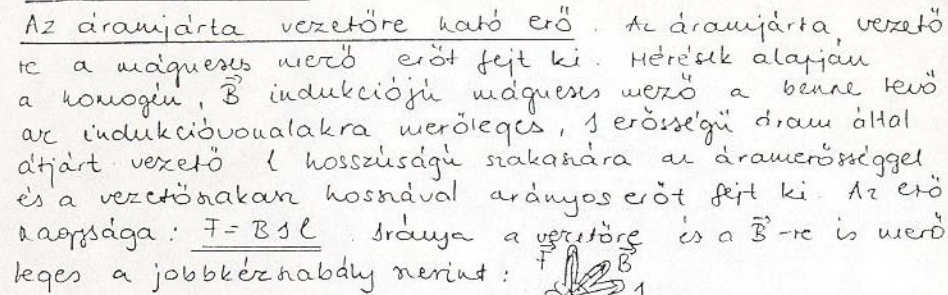 Az áramjárta vezetőre ható erő. Az áramjárta vezető
re a mágneses mező erőt fejt ki. Mérések alapján
a homogén, B⃗ indukciójú mágneses mező a benne levő
az indukcióvonalakra merőleges, I erősségű áram által
átjárt vezető l hosszúságú szakaszára az áramerősséggel
és a vezetőszakasz hosszával arányos erőt fejt ki. Az erő
nagysága: F = B I l Iránya a vezetőre és a B⃗-re is merő
leges a jobbkézszabály szerint: F⃗ B⃗ I